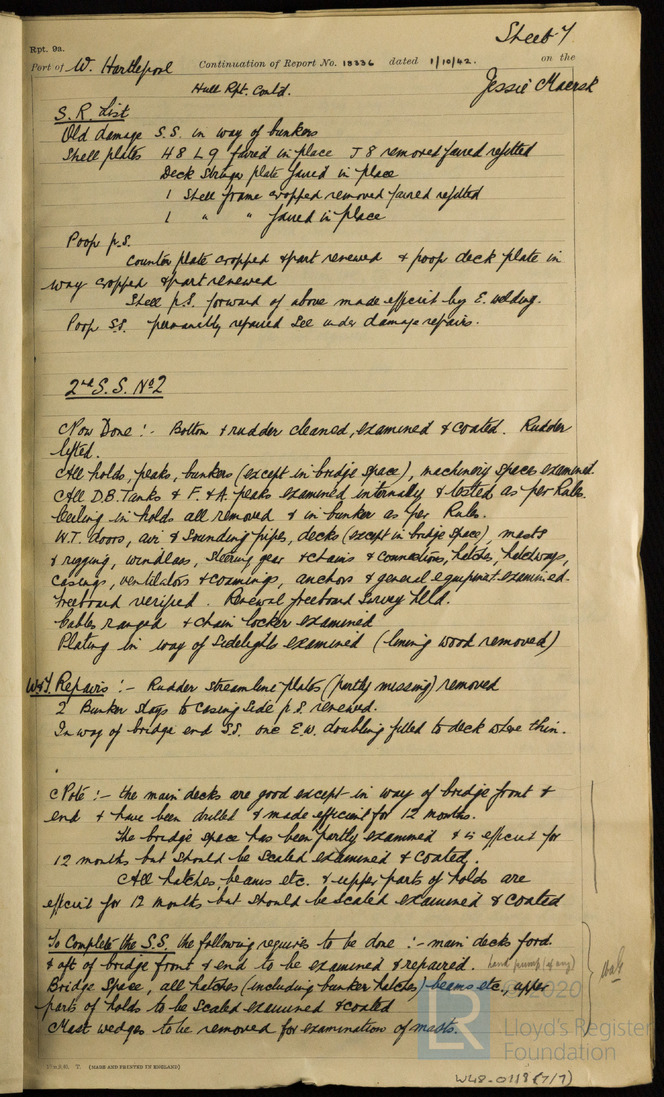 Sheet 7
Rpt. 9a.
Port of W. Hartlepool Continuation of Report No. 18336 dated 1/10/42. on the
Hull Rpt. Contd. Jessie Maersk
S.R. List
Old damage S.S. in way of bunkers
Shell plates H8 L9 faired in place J8 removed faired refitted
Deck stringer plate faired in place
1 Shell frame cropped removed faired refitted
1 " " faired in place
Poop p.s.
Counter plate cropped & part renewed & poop deck plate in
way cropped & part renewed
Shell p.s. forward of above made efficient by E. welding.
Poop S.S. permanently repaired See under damage repairs.
2nd S.S. No 2
Now Done :- Bottom & rudder cleaned, examined & coated. Rudder
lifted.
All holds, peaks, bunkers (except in bridge space), machinery spaces examined
All D.B. Tanks & F. & A. peaks examined internally & tested as per Rules.
Ceiling in holds all removed & in bunker as per Rules.
W.T. doors, air & sounding pipes, decks (except in bridge space), masts
& rigging, windlass, steering gear & chains & connections, hatches, hatchways,
casings, ventilators & coamings, anchors & general equipment examined.
Freeboard verified. Renewal freeboard Survey held.
Cables ranged & chain locker examined
Plating in way of Sidelights examined (lining wood removed)
W&T. Repairs :- Rudder streamline plates (partly missing) removed
2 Bunker stays to casing side p.s. renewed.
In way of bridge end S.S. one E.W. doubling fitted to deck where thin.
Note :- the main decks are good except in way of bridge front &
end & have been drilled & made efficient for 12 months.
The bridge space has been partly examined & is efficient for
12 months but should be scaled examined & coated.
All hatches, beams etc. & upper parts of holds are
efficient for 12 months but should be scaled examined & coated
To Complete the S.S. the following requires to be done :- main decks ford
& aft of bridge front & end to be examined & repaired. hand pump (if any)
Bridge Space, all hatches (including bunker hatches) beams etc., upper
parts of holds to be scaled examined & coated
Mast wedges to be removed for examination of masts.
© 2020
LR
Lloyd's Register
Foundation
(MADE AND PRINTED IN ENGLAND)
W48-0118 (7/7)